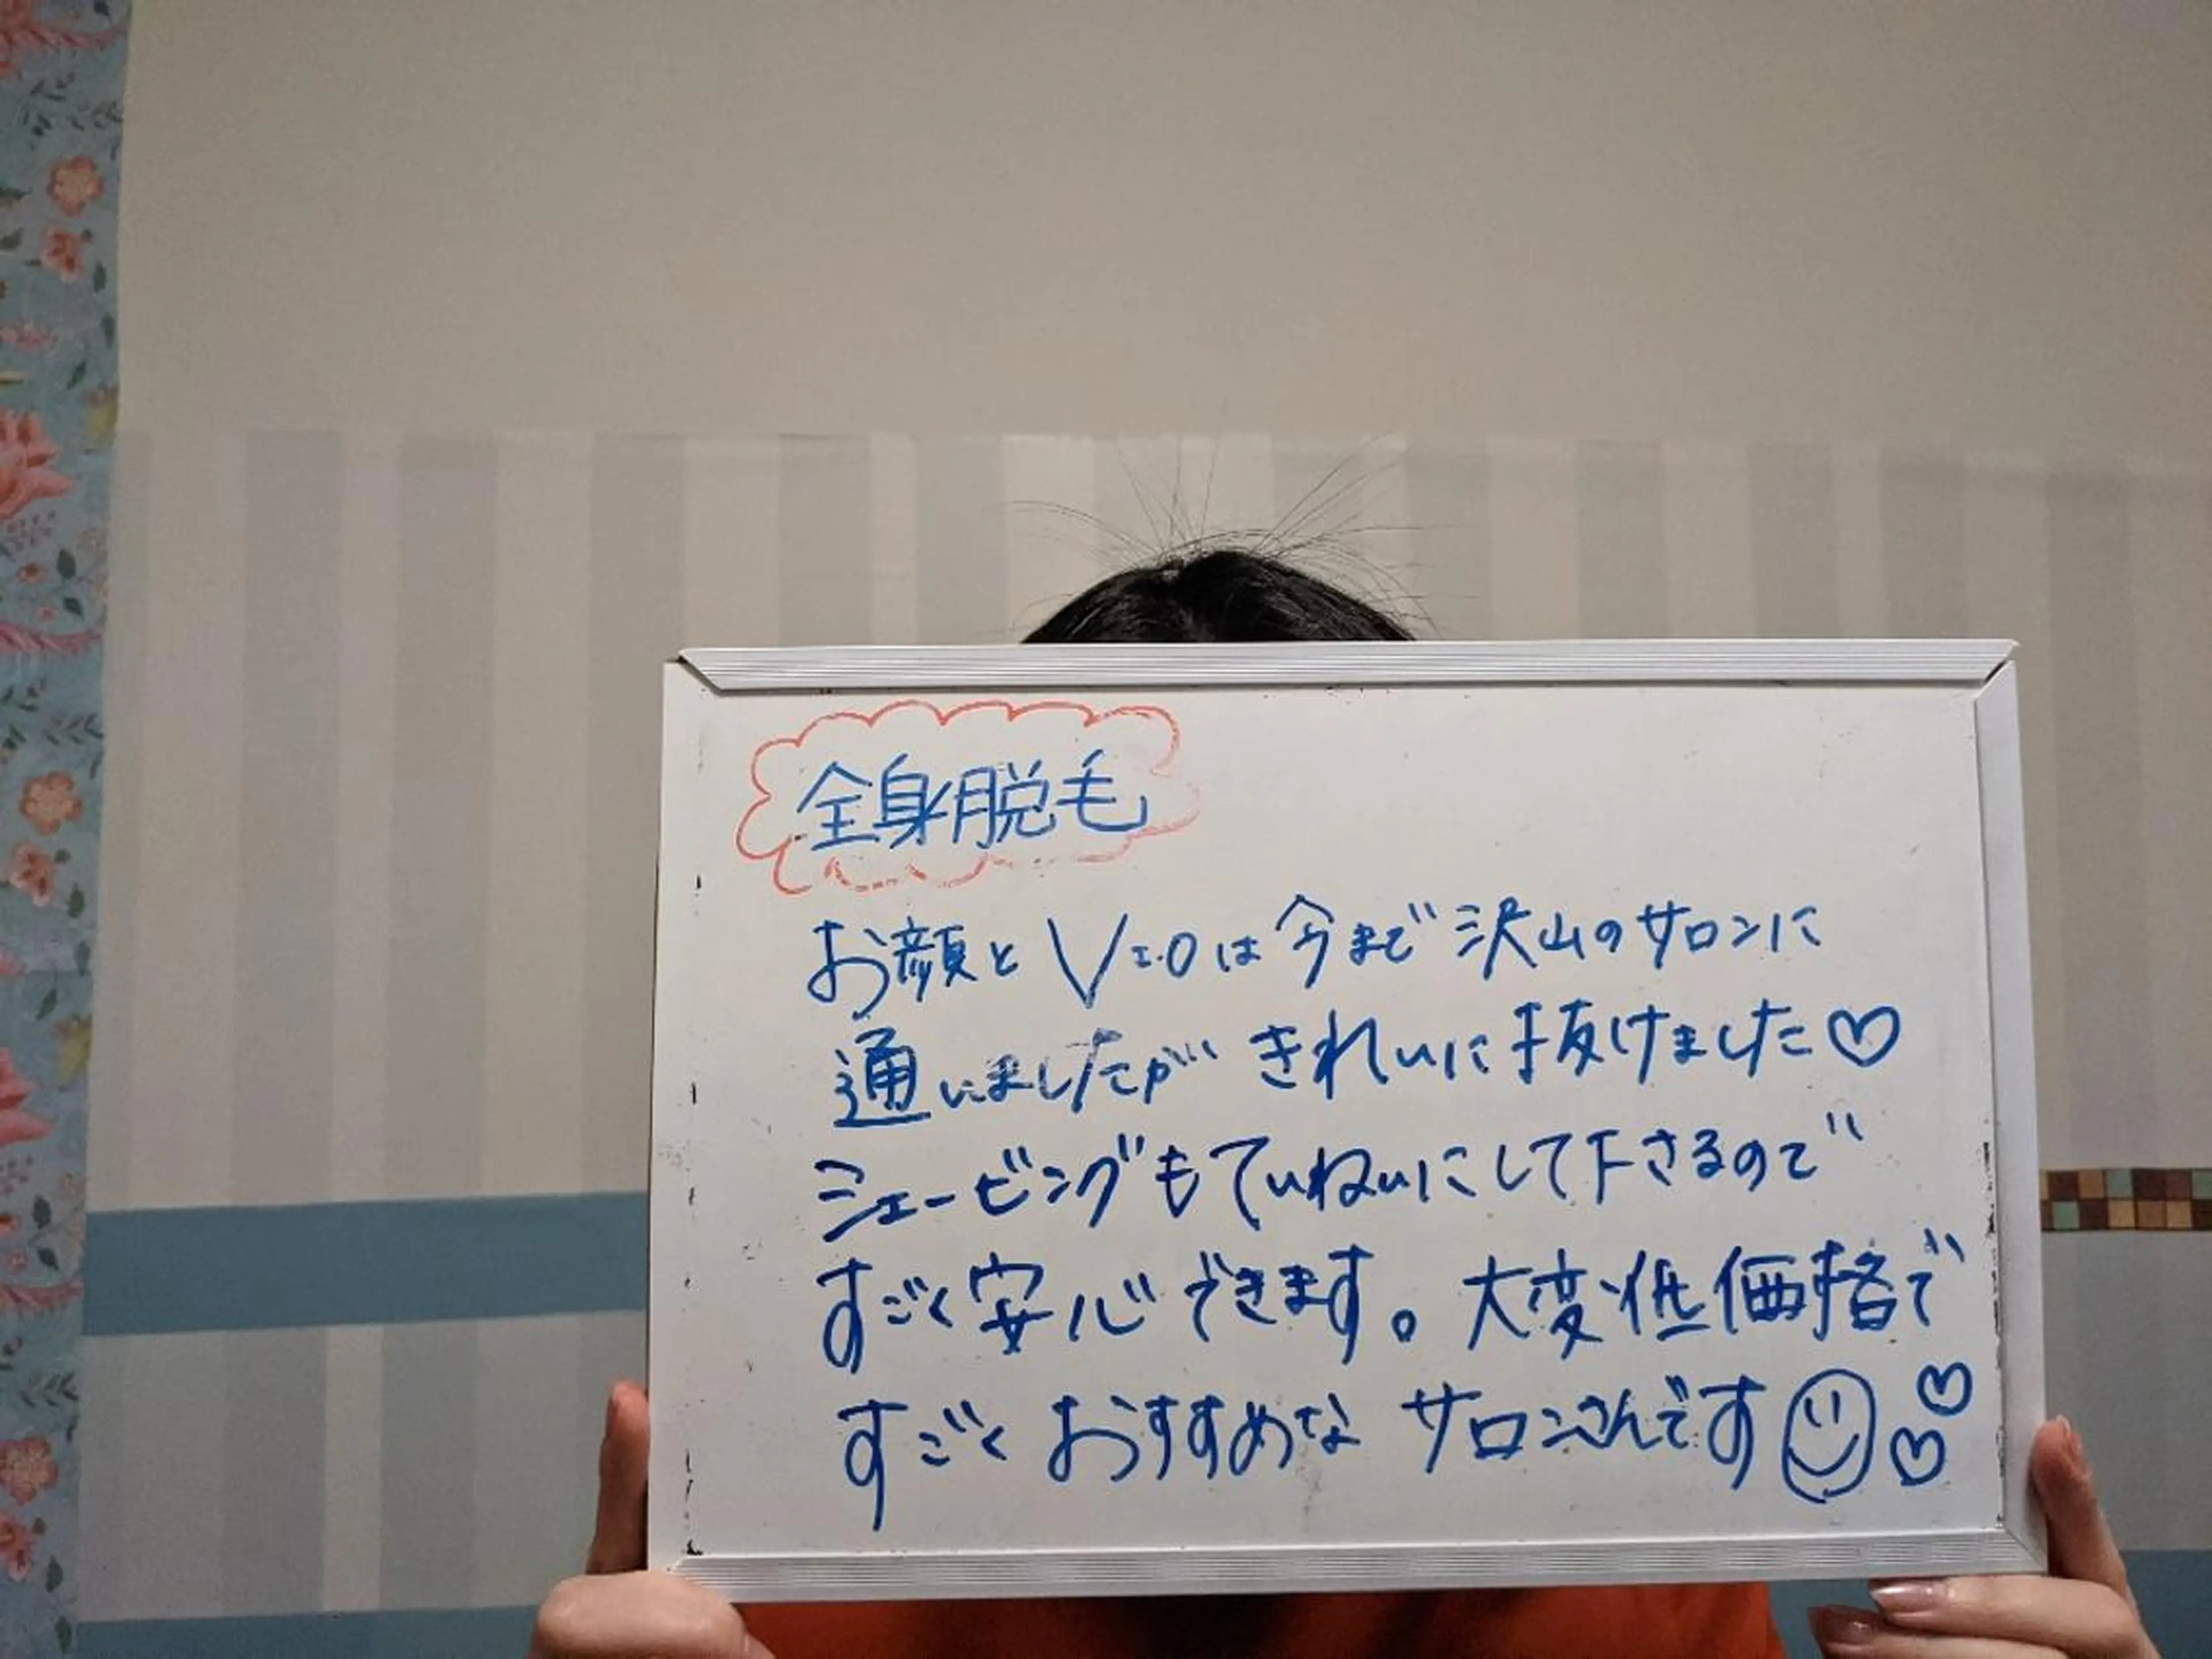 全身脱毛
お顔とVIOは今まで沢山のサロンに
通いましたが きれいに抜けました♡
シェービングもていねいにして下さるので
すごく安心できます。大変低価格で
すごくおすすめな サロンさんです